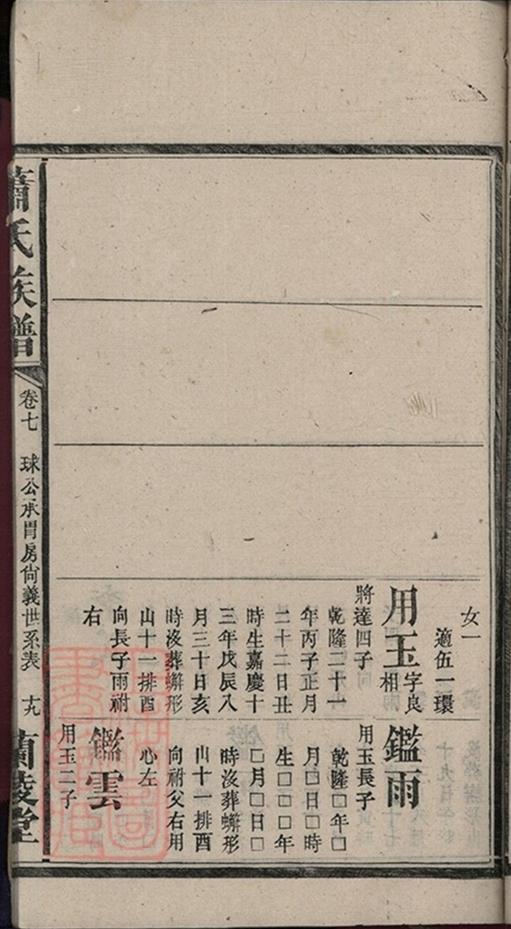 蕭氏族譜
卷七
球公承胄房尚義世系表
十九
蘭陵堂
女一
適伍一環
用玉字良
相
將達四子
乾隆二十一
年丙子正月
二十二日丑
時生嘉慶十
三年戊辰八
月三十日亥
時沒葬蠏形
山十一排酉
向長子雨祔
右
鑑雨
用玉長子
乾隆□年□
月□日□時
生□□□年
□月□日□
時沒葬蠏形
山十一排酉
向祔父右用
心左
鑑雲
用玉二子